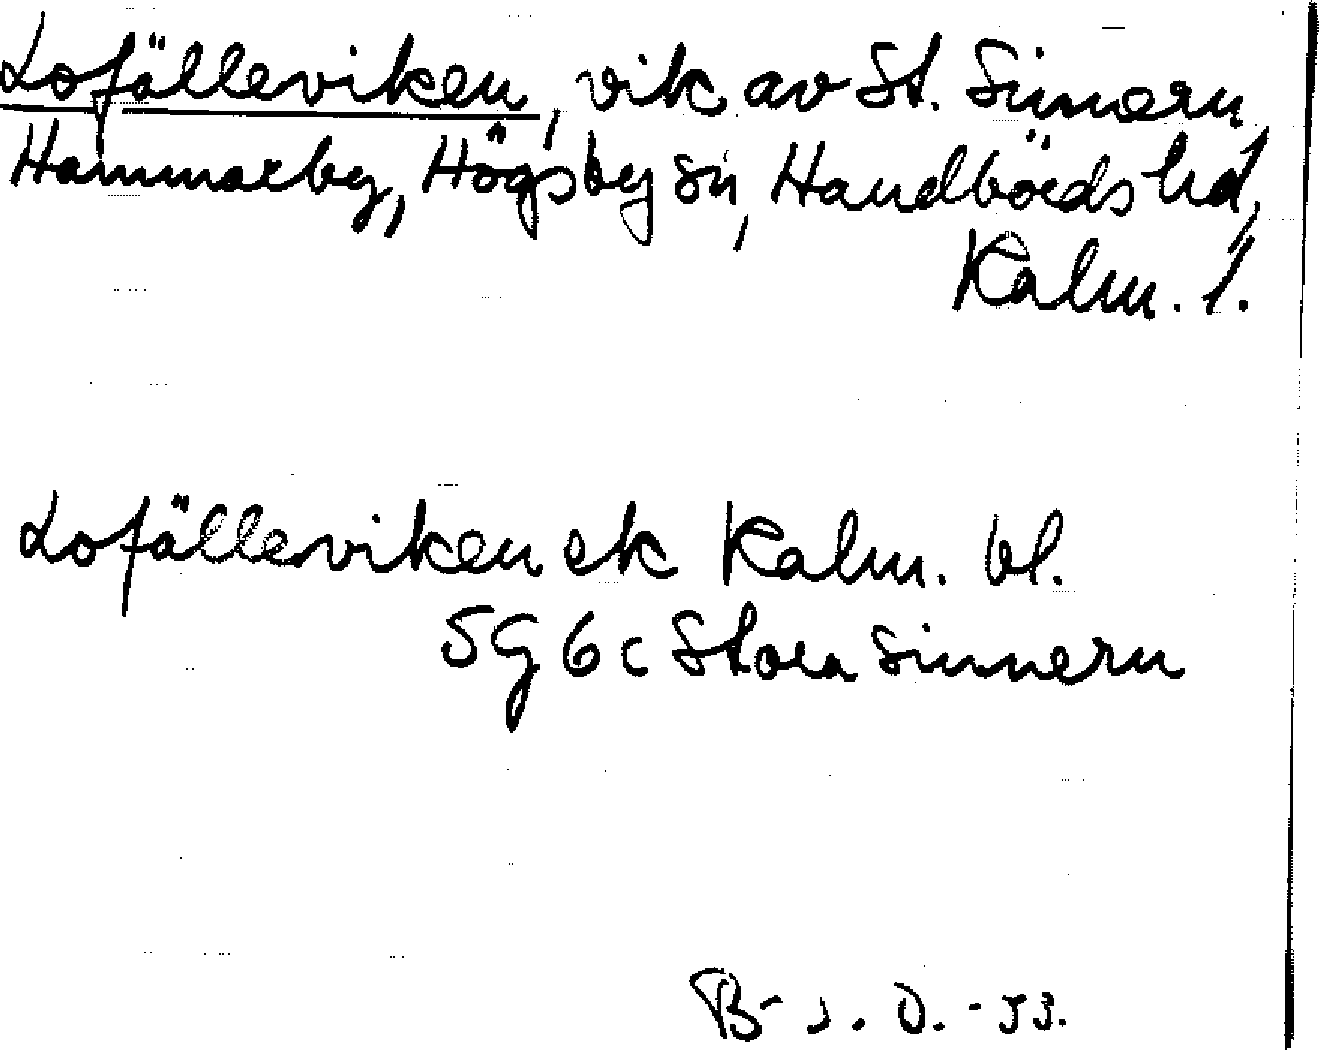 Lofälleviken, vik av St. Sinnern
Hammarby, Högsby sn, Handbörds hd,
Kalm. l.
Lofälleviken ek Kalm. bl.
5G 6c Stora Sinnern
B-J. O. -53.